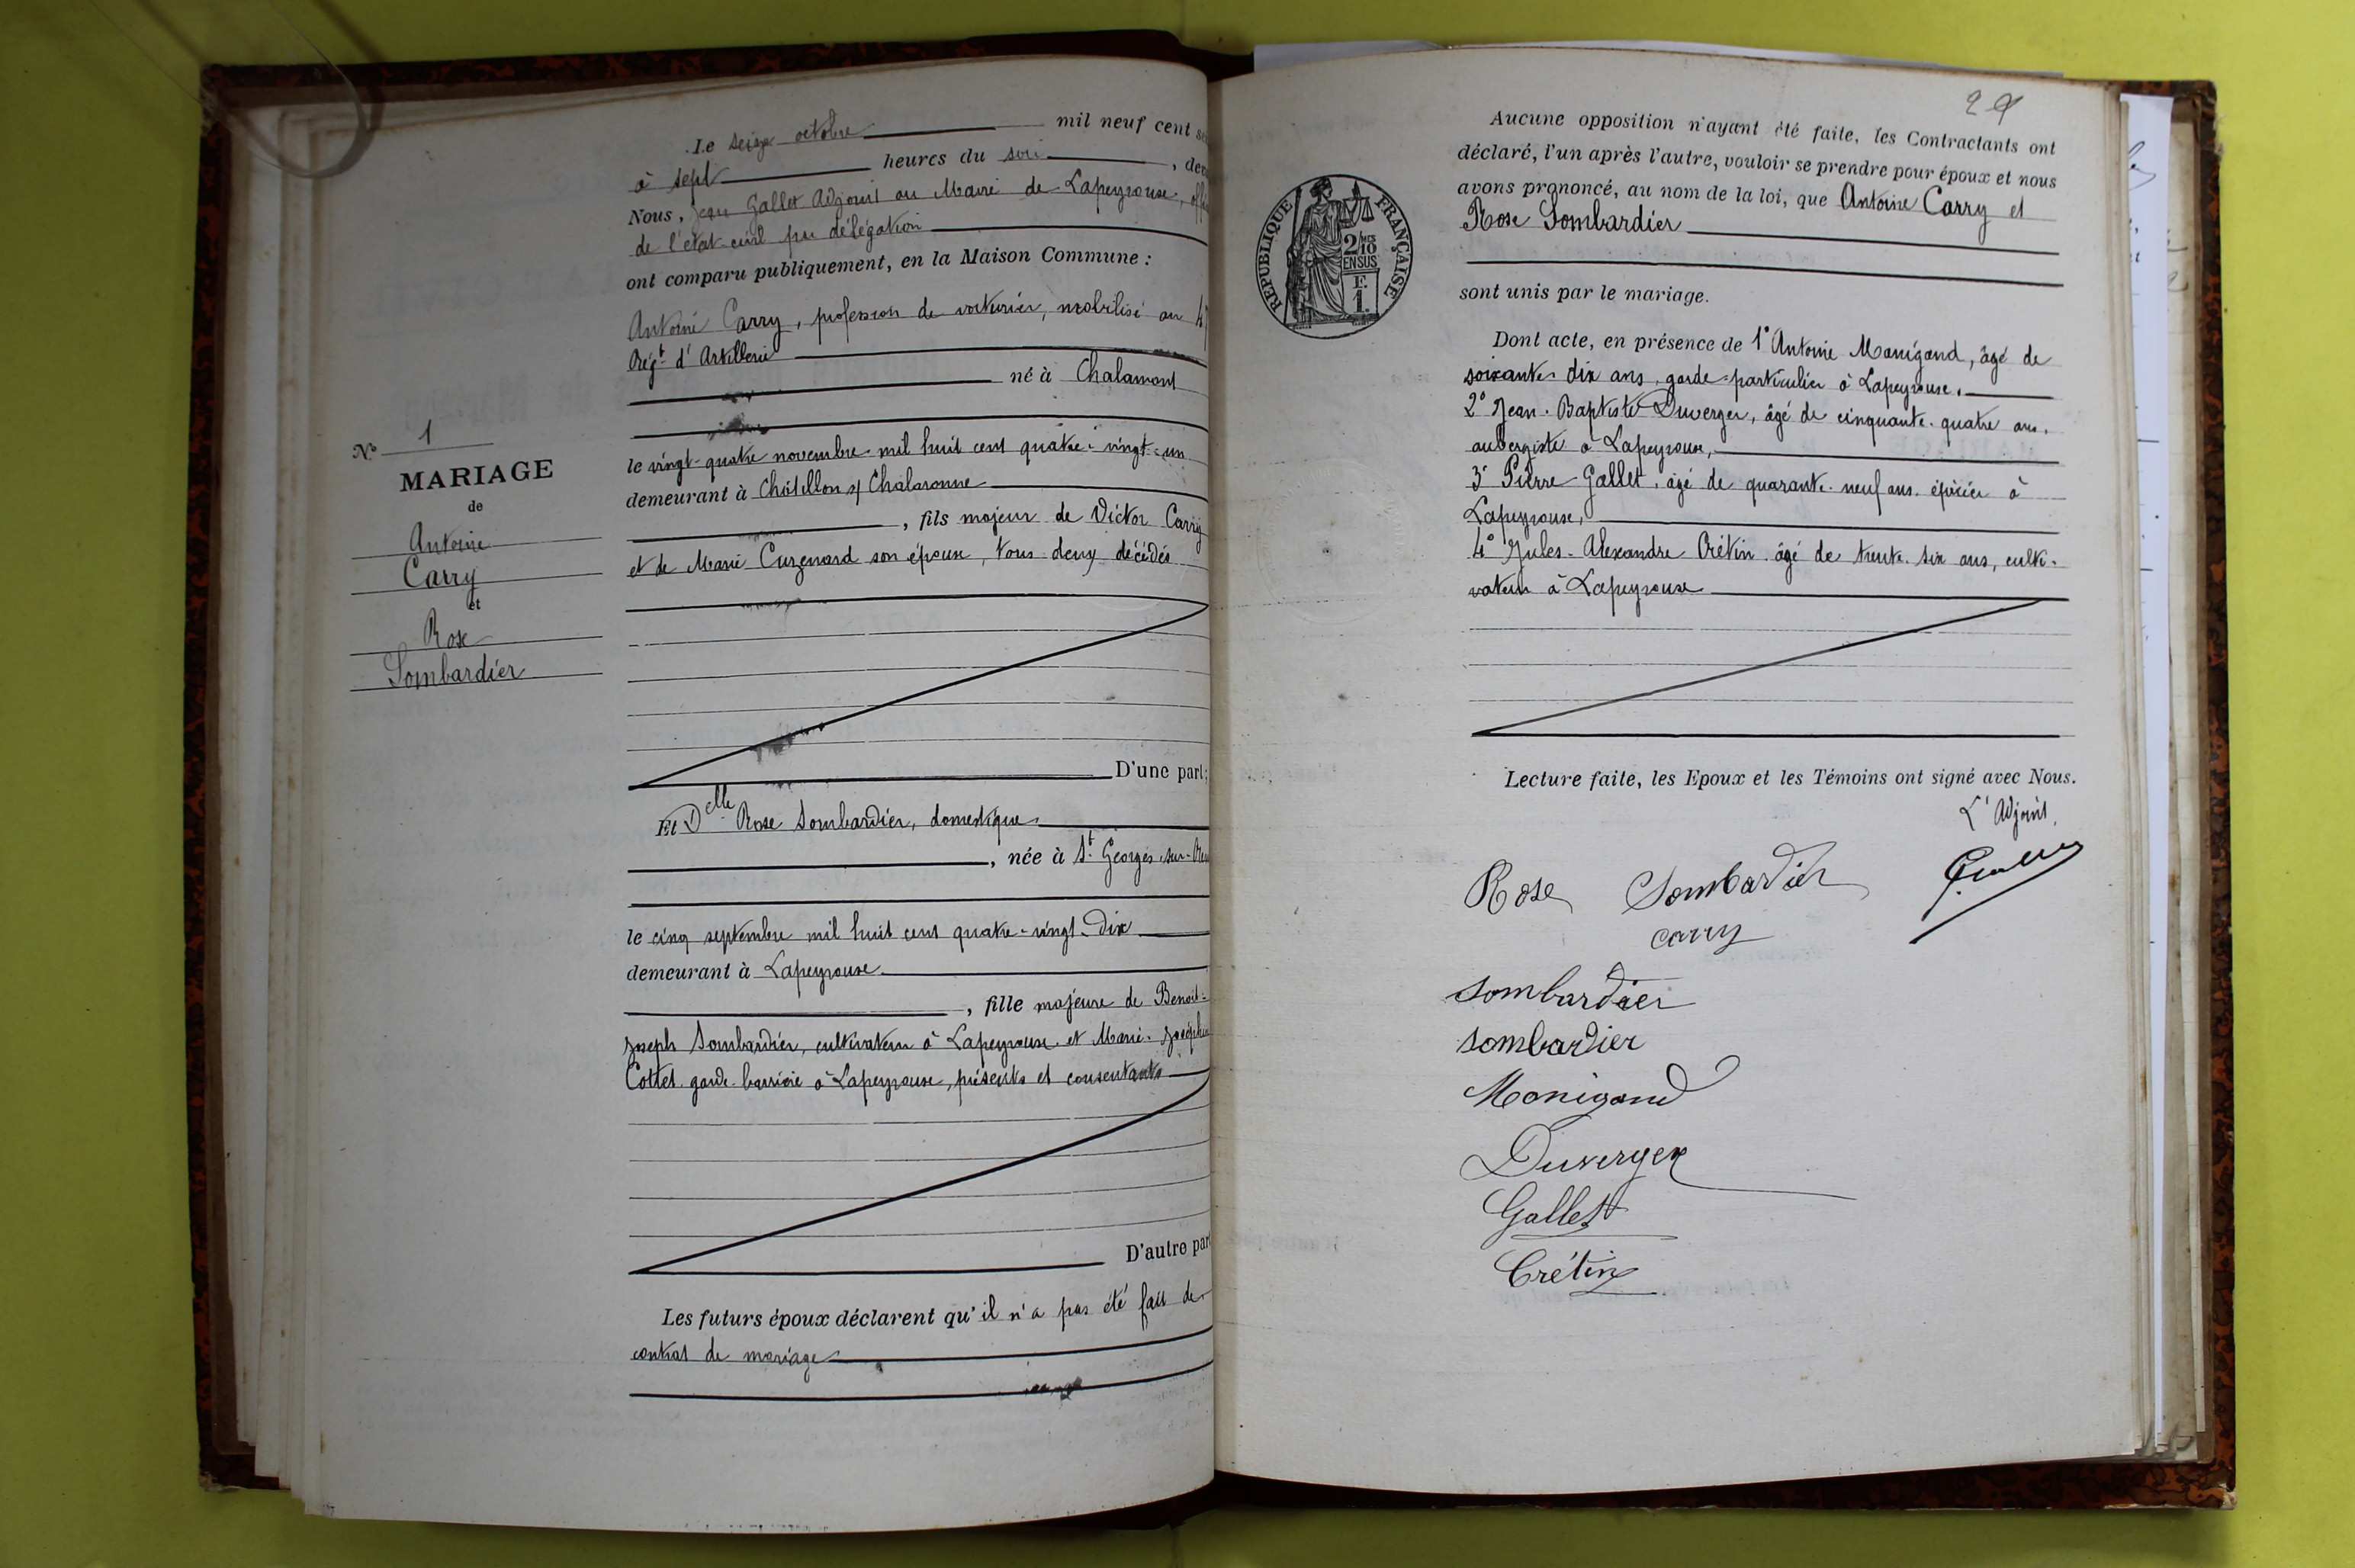 Le seize octobre mil neuf cent
à sept heures du soir
Nous, Jean Gallet Adjoint au Maire de Lapeyrouse,
de l'état-civil par délégation
ont comparu publiquement, en la Maison Commune :
Antoine Carry, profession de voiturier, mobilisé au
Régt d'Artillerie
né à Chalamont
le vingt-quatre novembre mil huit cent quatre-vingt-un
demeurant à Châtillon s/ Chalaronne
, fils majeur de Victor Carry
et de Marie Curzenard son épouse, tous deux décédés
D'une part;
No 1
MARIAGE
de
Antoine
Carry
et
Rose
Sombardier
Et Delle Rose Sombardier, domestique
, née à St Georges-sur-
le cinq septembre mil huit cent quatre-vingt-dix
demeurant à Lapeyrouse
, fille majeure de Benoit-
Joseph Sombardier, cultivateur à Lapeyrouse et Marie-
Cottet garde-barrière à Lapeyrouse, présents et consentants
D'autre part
Les futurs époux déclarent qu'il n'a pas été fait de
contrat de mariage
29
Aucune opposition n'ayant été faite, les Contractants ont
déclaré, l'un après l'autre, vouloir se prendre pour époux et nous
avons prononcé, au nom de la loi, que Antoine Carry et
Rose Sombardier
sont unis par le mariage.
REPUBLIQUE FRANÇAISE
2/10
EN SUS
F.
1.
Dont acte, en présence de 1° Antoine Manigand, âgé de
soixante-dix ans, garde-particulier à Lapeyrouse.
2° Jean-Baptiste Duverger, âgé de cinquante-quatre ans,
aubergiste à Lapeyrouse,
3° Pierre Gallet, âgé de quarante-neuf ans, épicier à
Lapeyrouse,
4° Jules-Alexandre Crétin âgé de trente-six ans, culti-
vateur à Lapeyrouse
Lecture faite, les Epoux et les Témoins ont signé avec Nous.
L'Adjoint,
Rose Sombardier
Carry
Sombardier
Sombardier
Manigand
Duverger
Gallet
Crétin